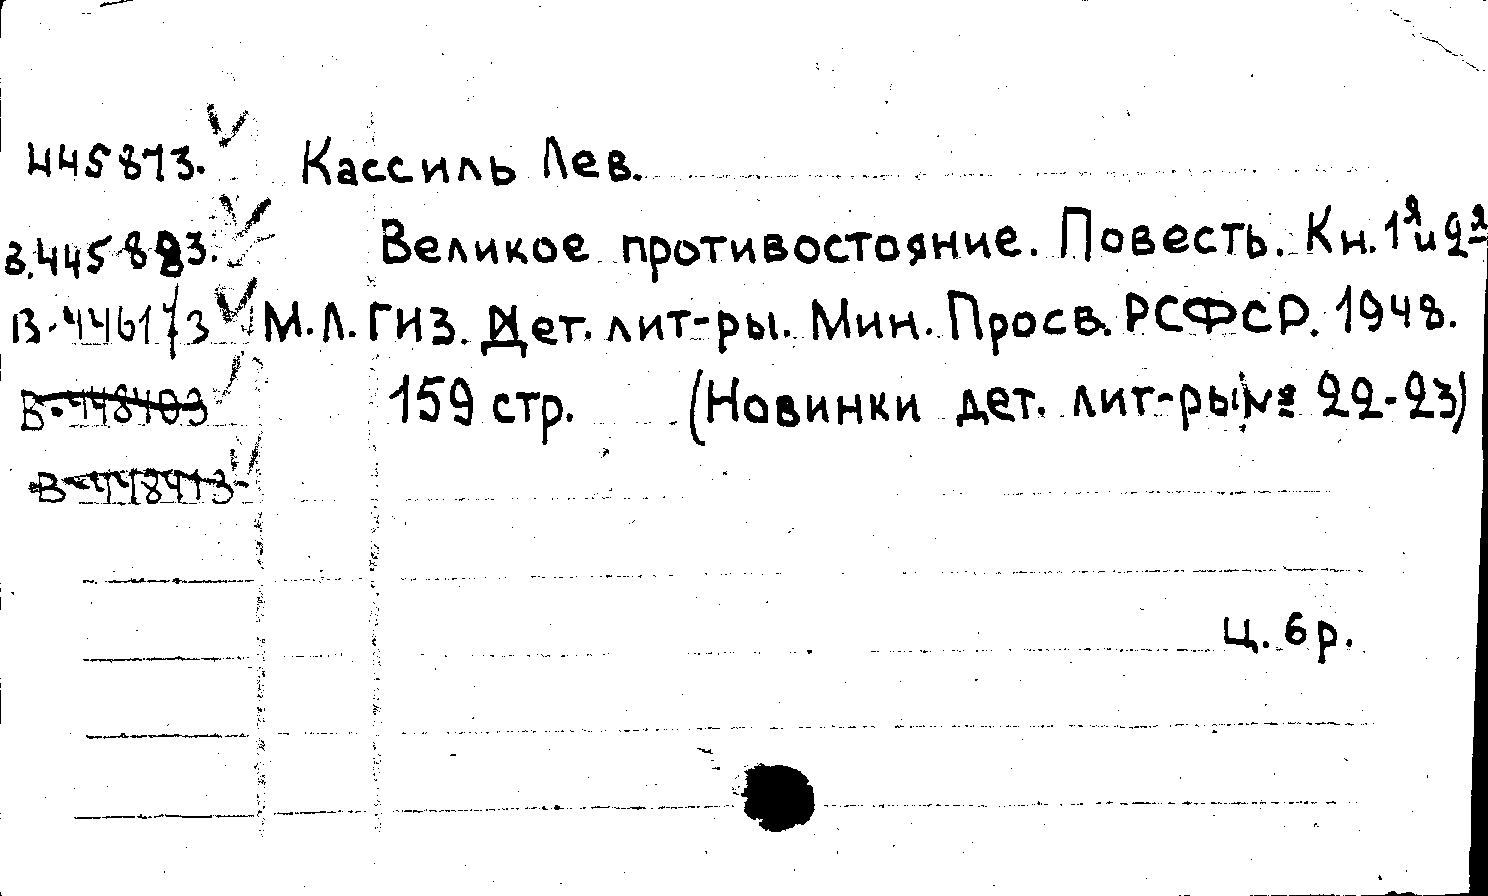 445873. Кассиль Лев.
В.445883. Великое противостояние. Повесть. Кн. 1я и 2я
В.446173 М.Л. ГИЗ. Дет. лит-ры. Мин. Просв. РСФСР. 1948.
В.448403 159 стр. (Новинки дет. лит-ры № 22-23)
В-448413
ц. 6 р.